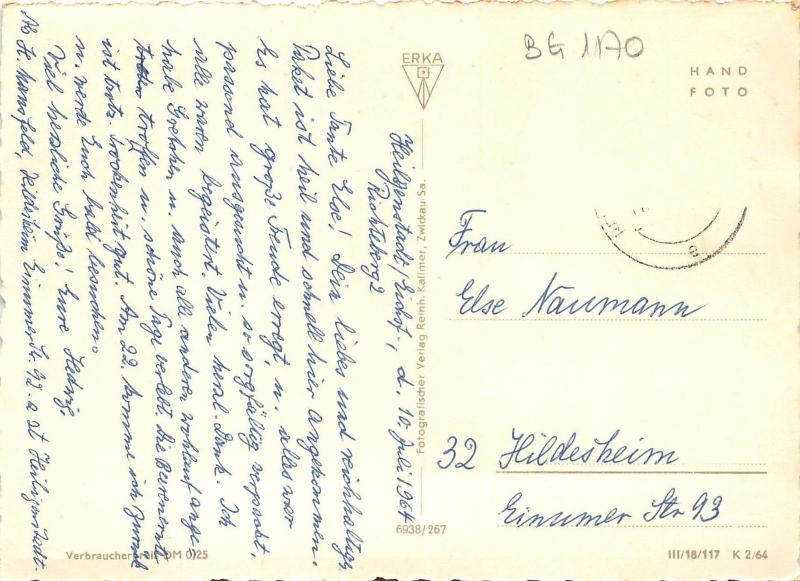 BG 1170
ERKA
HAND
FOTO
Heiligenstadt/Eichsf., d. 10. Juli 1964
Richteberg 2
Liebe Tante Else! Dein liebes und reichhaltiges
Paket ist heil und schnell hier angekommen.
Es hat große Freude erregt, u. alles war
passend ausgesucht u. so sorgfältig verpackt,
alle waren begeistert. Vielen herzl. Dank. Ich
habe Gretchen u. auch alle anderen wohlauf ange-
troffen u. schöne Tage verlebt. Die Beerenernte
ist trotz Trockenheit gut. Am 22. komme ich zurück
u. werde Euch bald besuchen.
Viel herzliche Grüße! Eure Hedwig.
Ab H. Mansfeld, Hildesheim Einumer Str. 92. a. zt Heiligenstadt.
Fotografischer Verlag Reinh. Kallmer, Zwickau Sa.
Frau
Else Naumann
32 Hildesheim
Einumer Str 93
6938/267
Verbraucherpreis DM 0,25
III/18/117 K 2/64